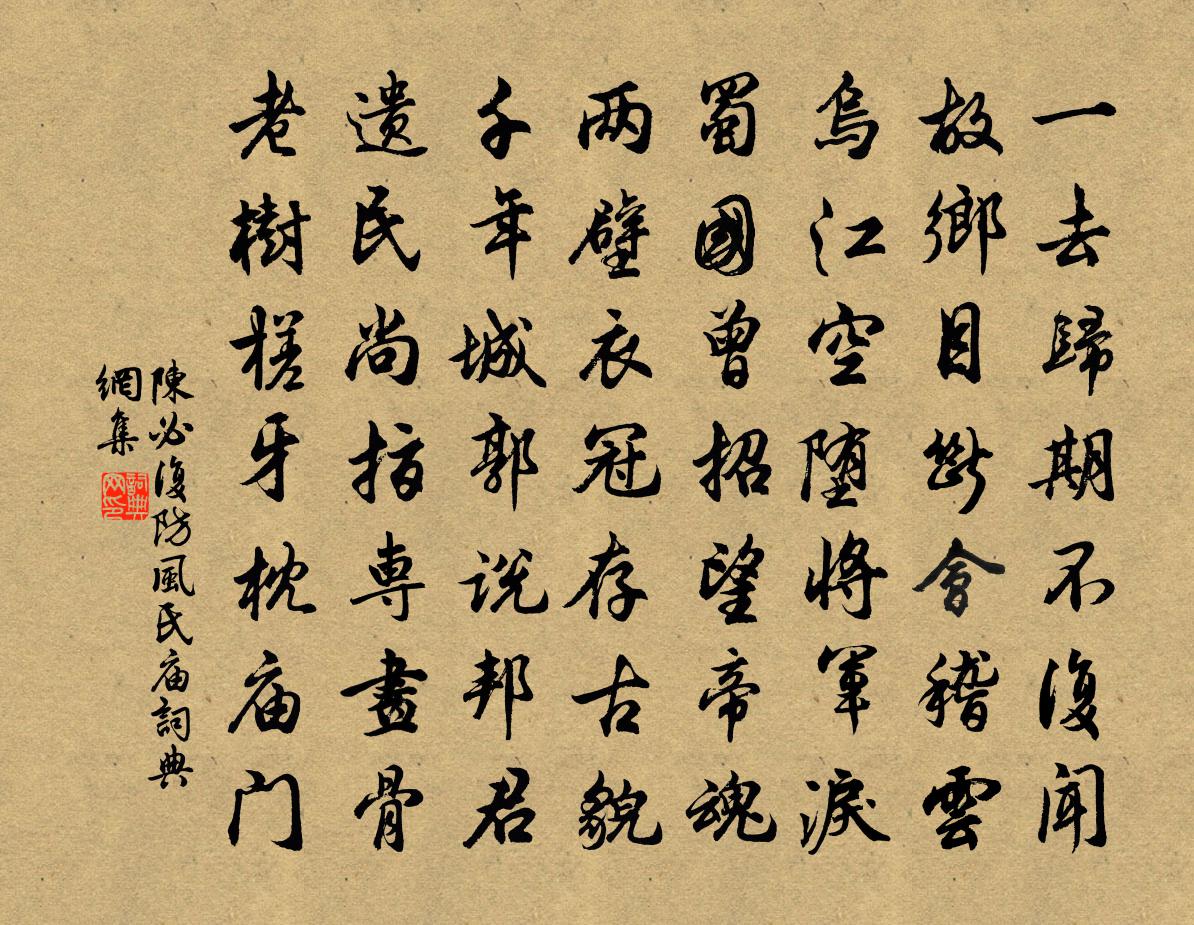 一去歸期不復聞
故鄉目斷會稽雲
烏江空堕將軍淚
蜀國曾招望帝魂
两壁衣冠存古貌
千年城郭說邦君
遗民尚指専畫骨
老樹槎牙枕庙门
陳必復防風氏庙詞典
網集
詞典
网印